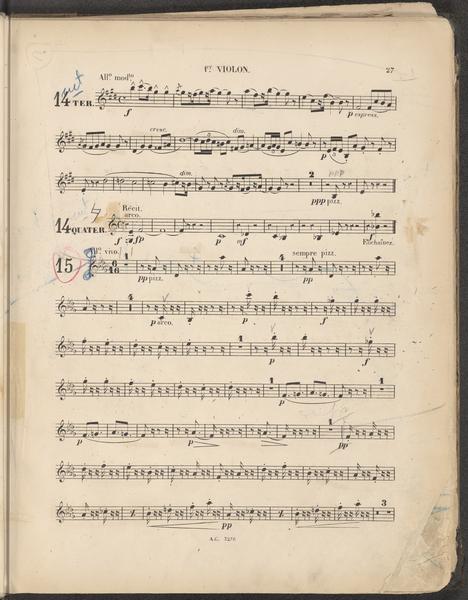 1er VIOLON.
27
14 TER.
Allo modto
f
p express.
cresc.
dim.
p
dim.
2
ppp
ppp pizz.
14 QUATER.
Récit.
arco.
f
fp
p
mf
f
Enchaînez.
15
Allo vivo.
6
16
1
pp pizz.
4
sempre pizz.
4
p arco.
p
f
1
p
f
1
p
1
p
p
1
pp
pp
3
A.C. 7278